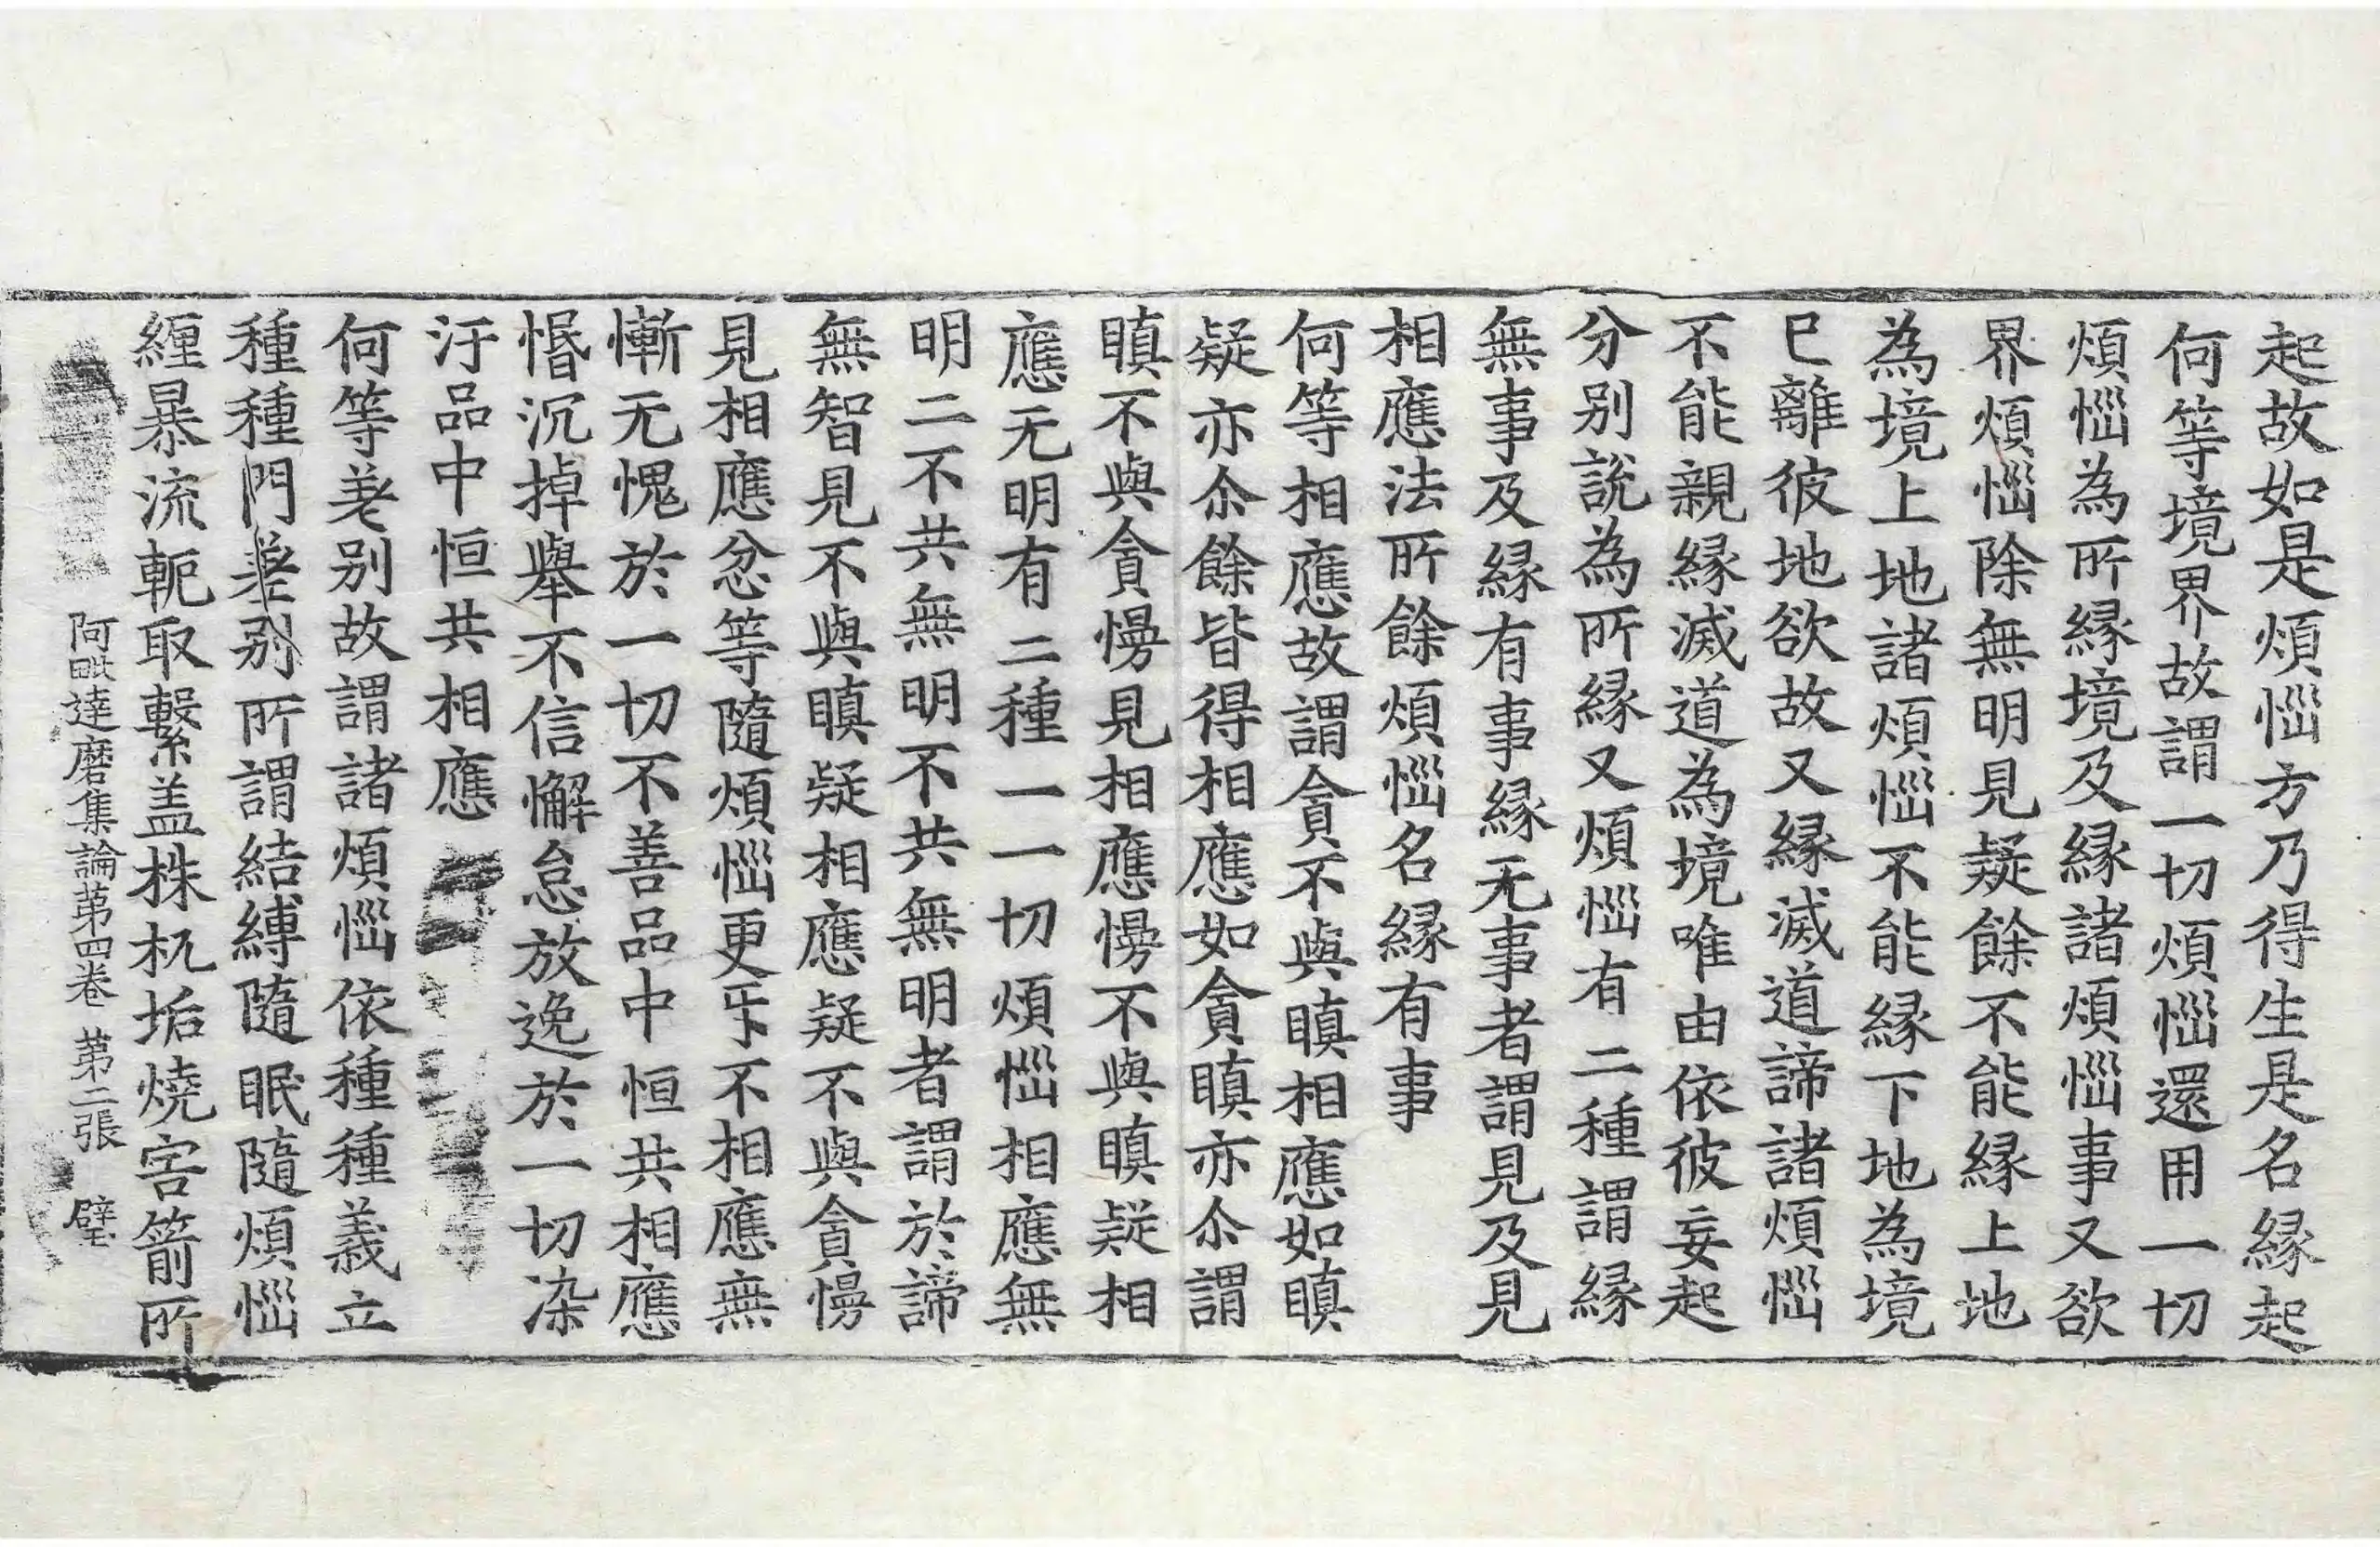 起故如是煩惱方乃得生是名縁起
何等境界故謂一切煩惱還用一切
煩惱為所縁境及縁諸煩惱事又欲
界煩惱除無明見疑餘不能縁上地
為境上地諸煩惱不能縁下地為境
已離彼地欲故又縁滅道諦諸煩惱
不能親縁滅道為境唯由依彼妄起
分别說為所縁又煩惱有二種謂縁
無事及縁有事縁无事者謂見及見
相應法所餘煩惱名縁有事
何等相應故謂貪不與瞋相應如瞋
疑亦尒餘皆得相應如貪瞋亦尒謂
瞋不與貪慢見相應慢不與瞋疑相
應无明有二種一一切煩惱相應無
明二不共無明不共無明者謂於諦
無智見不與瞋疑相應疑不與貪慢
見相應忿等隨煩惱更㸦不相應無
慚无愧於一切不善品中恒共相應
惛沉掉舉不信懈怠放逸於一切染
汙品中恒共相應
何等差别故謂諸煩惱依種種義立
種種門差别所謂結縛隨眠隨煩惱
纏暴流軛取繫盖株杌垢燒害箭所
阿毗達磨集論苐四卷 苐二張 璧